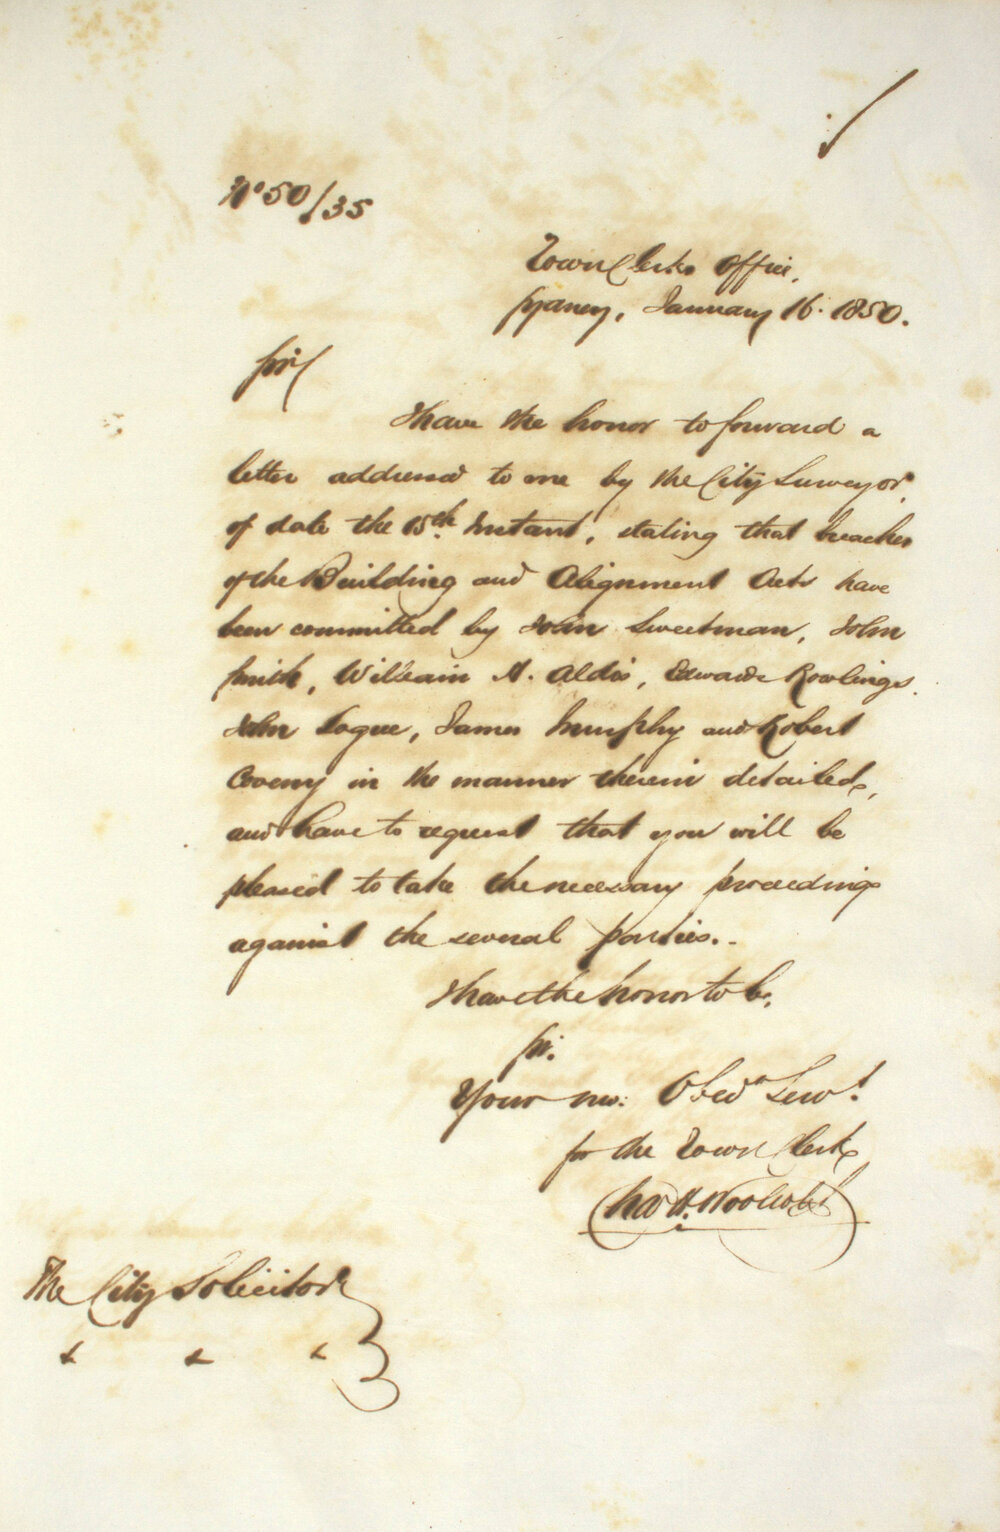 No 50/35
Town Clerks Office,
Sydney, January 16. 1850.
Sir/
I have the honor to forward a
letter addressed to me by the City Surveyor,
of date the 15th. Instant, stating that breaches
of the Building and Alignment Acts have
been committed by John Sweetman, John
Smith, William H. Aldis, Edward Rowlings,
John Logue, James Murphy and Robert
Coveny in the manner therein detailed,
and have to request that you will be
pleased to take the necessary proceedings
against the several parties..
I have the honor to be,
Sir.
Your mo: Obedt Servt.
for the Town Clerk
Chas H. Woolcott
The City Solicitor